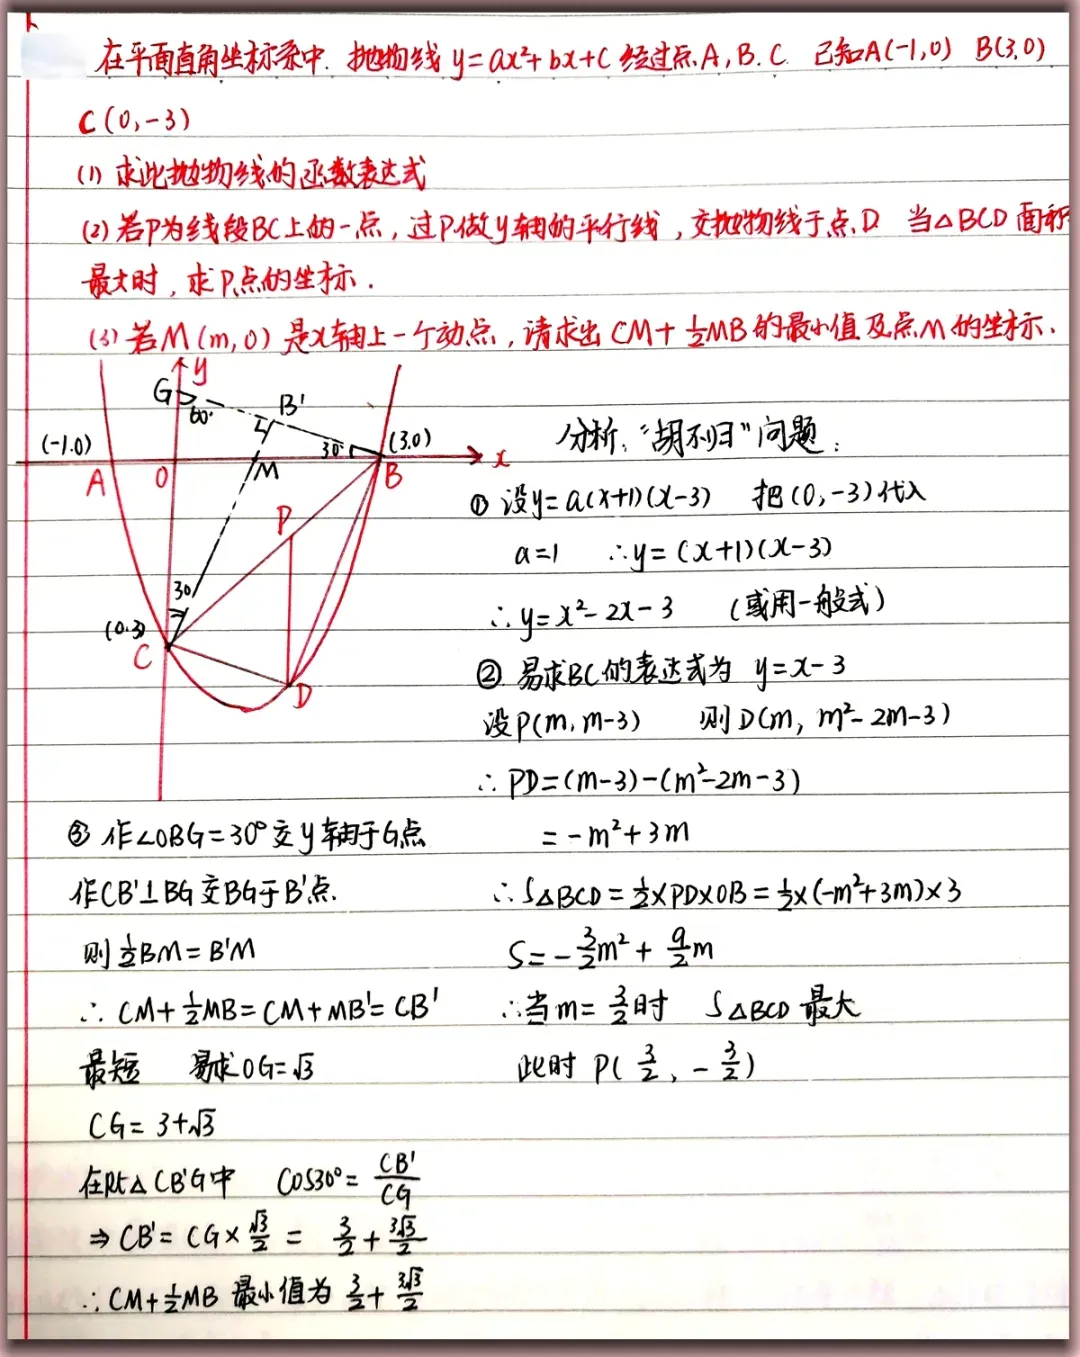 在平面直角坐标系中. 抛物线 y=ax²+bx+c 经过点A,B.C. 已知A(-1,0) B(3,0)
C(0,-3)
(1) 求此抛物线的函数表达式
(2) 若P为线段BC上的一点, 过P做y轴的平行线, 交抛物线于点D 当△BCD面积
最大时, 求P点的坐标.
(3) 若M(m,0) 是x轴上一个动点, 请求出 CM+½MB的最小值及点M的坐标.
y
G
60°
B'
(-1.0)
30°
(3.0)
x
A
O
M
B
P
30
(0.3)
C
D
分析: “胡不归”问题:
① 设y=a(x+1)(x-3) 把(0,-3)代入
a=1 ∴y=(x+1)(x-3)
∴y=x²-2x-3 (或用一般式)
② 易求BC的表达式为 y=x-3
设P(m,m-3) 则D(m, m²-2m-3)
∴PD=(m-3)-(m²-2m-3)
=-m²+3m
∴S△BCD=½×PD×OB=½×(-m²+3m)×3
S=-3/2m²+9/2m
∴当m=3/2时 S△BCD最大
此时 P(3/2, -3/2)
③ 作∠OBG=30°交y轴于G点
作CB'⊥BG交BG于B'点.
则½BM=B'M
∴CM+½MB=CM+MB'=CB'
最短 易求OG=√3
CG=3+√3
在Rt△CB'G中 cos30°=CB'/CG
⇒CB'=CG×√3/2=3/2+3√3/2
∴CM+½MB最小值为3/2+3√3/2